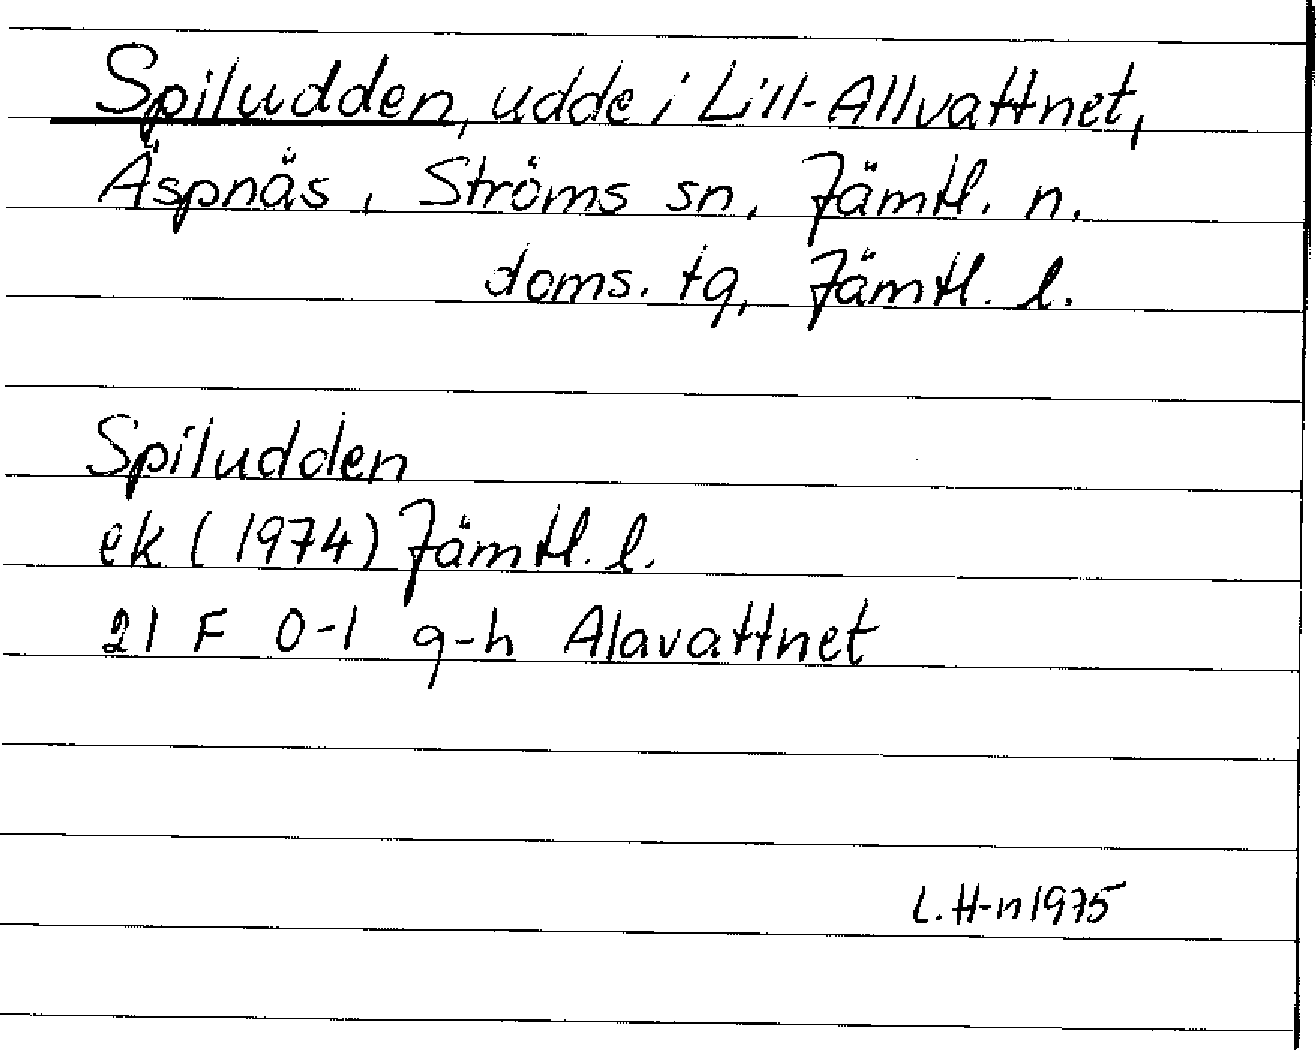 Spiludden, udde i Lill-Allvattnet,
Äspnäs, Ströms sn, Jämtl. n.
doms. tg, Jämtl. l.
Spiludden
ek (1974) Jämtl. l.
21 F 0-1 g-h Alavattnet
L. H-n 1975